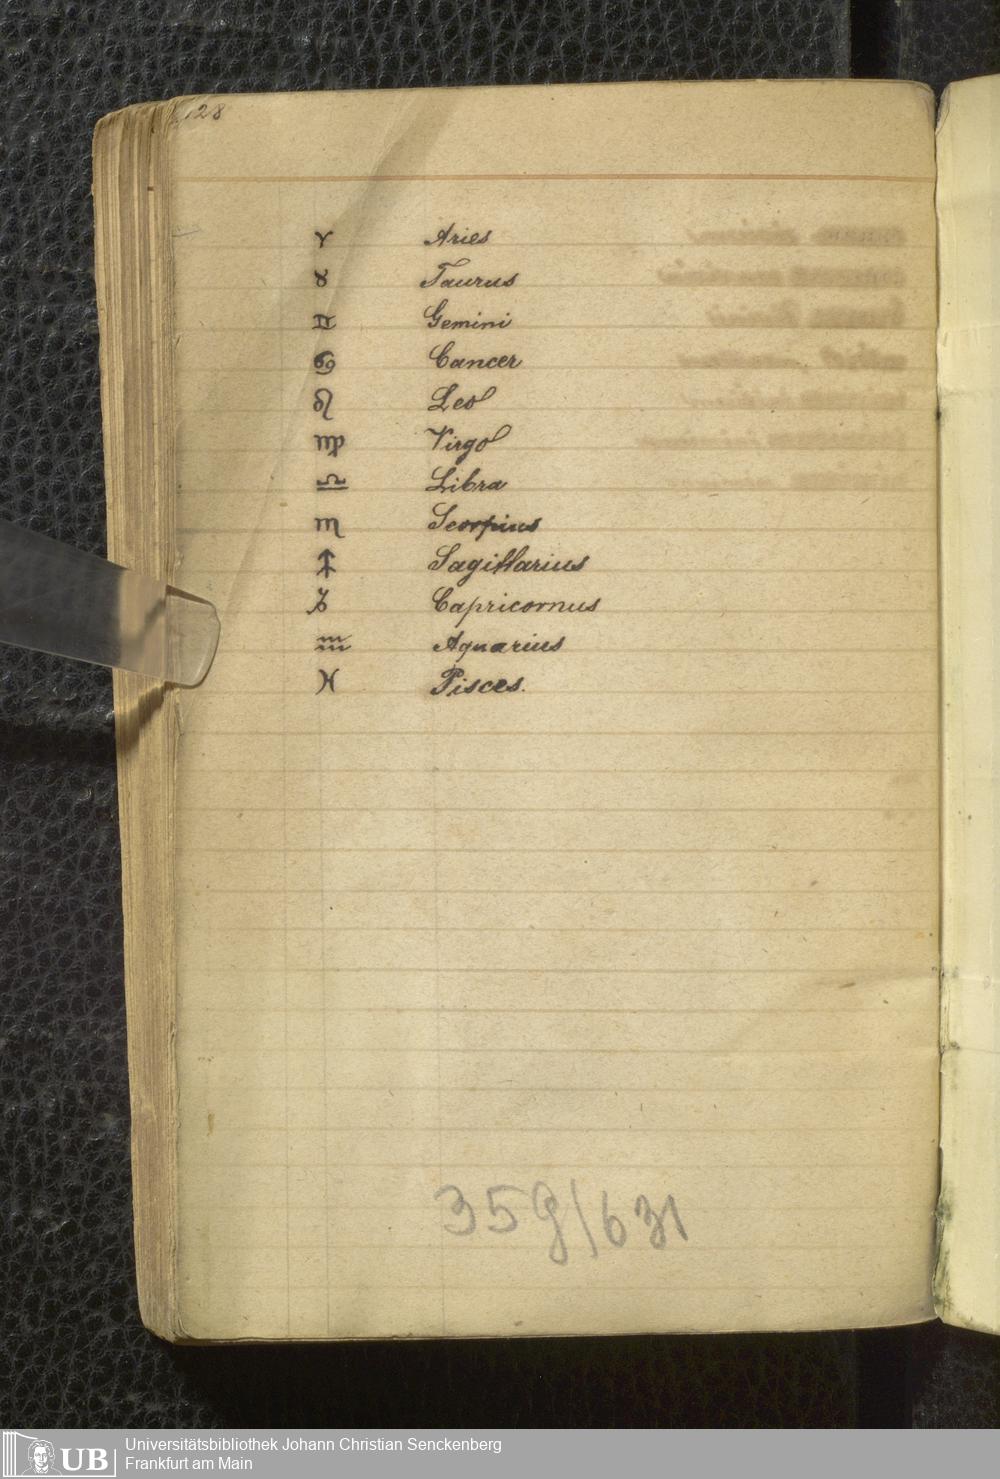 128
♈ Aries
♉ Taurus
♊ Gemini
♋ Cancer
♌ Leo
♍ Virgo
♎ Libra
♏ Scorpius
♐ Sagittarius
♑ Capricornus
♒ Aquarius
♓ Pisces.
359/631
UB
Universitätsbibliothek Johann Christian Senckenberg
Frankfurt am Main